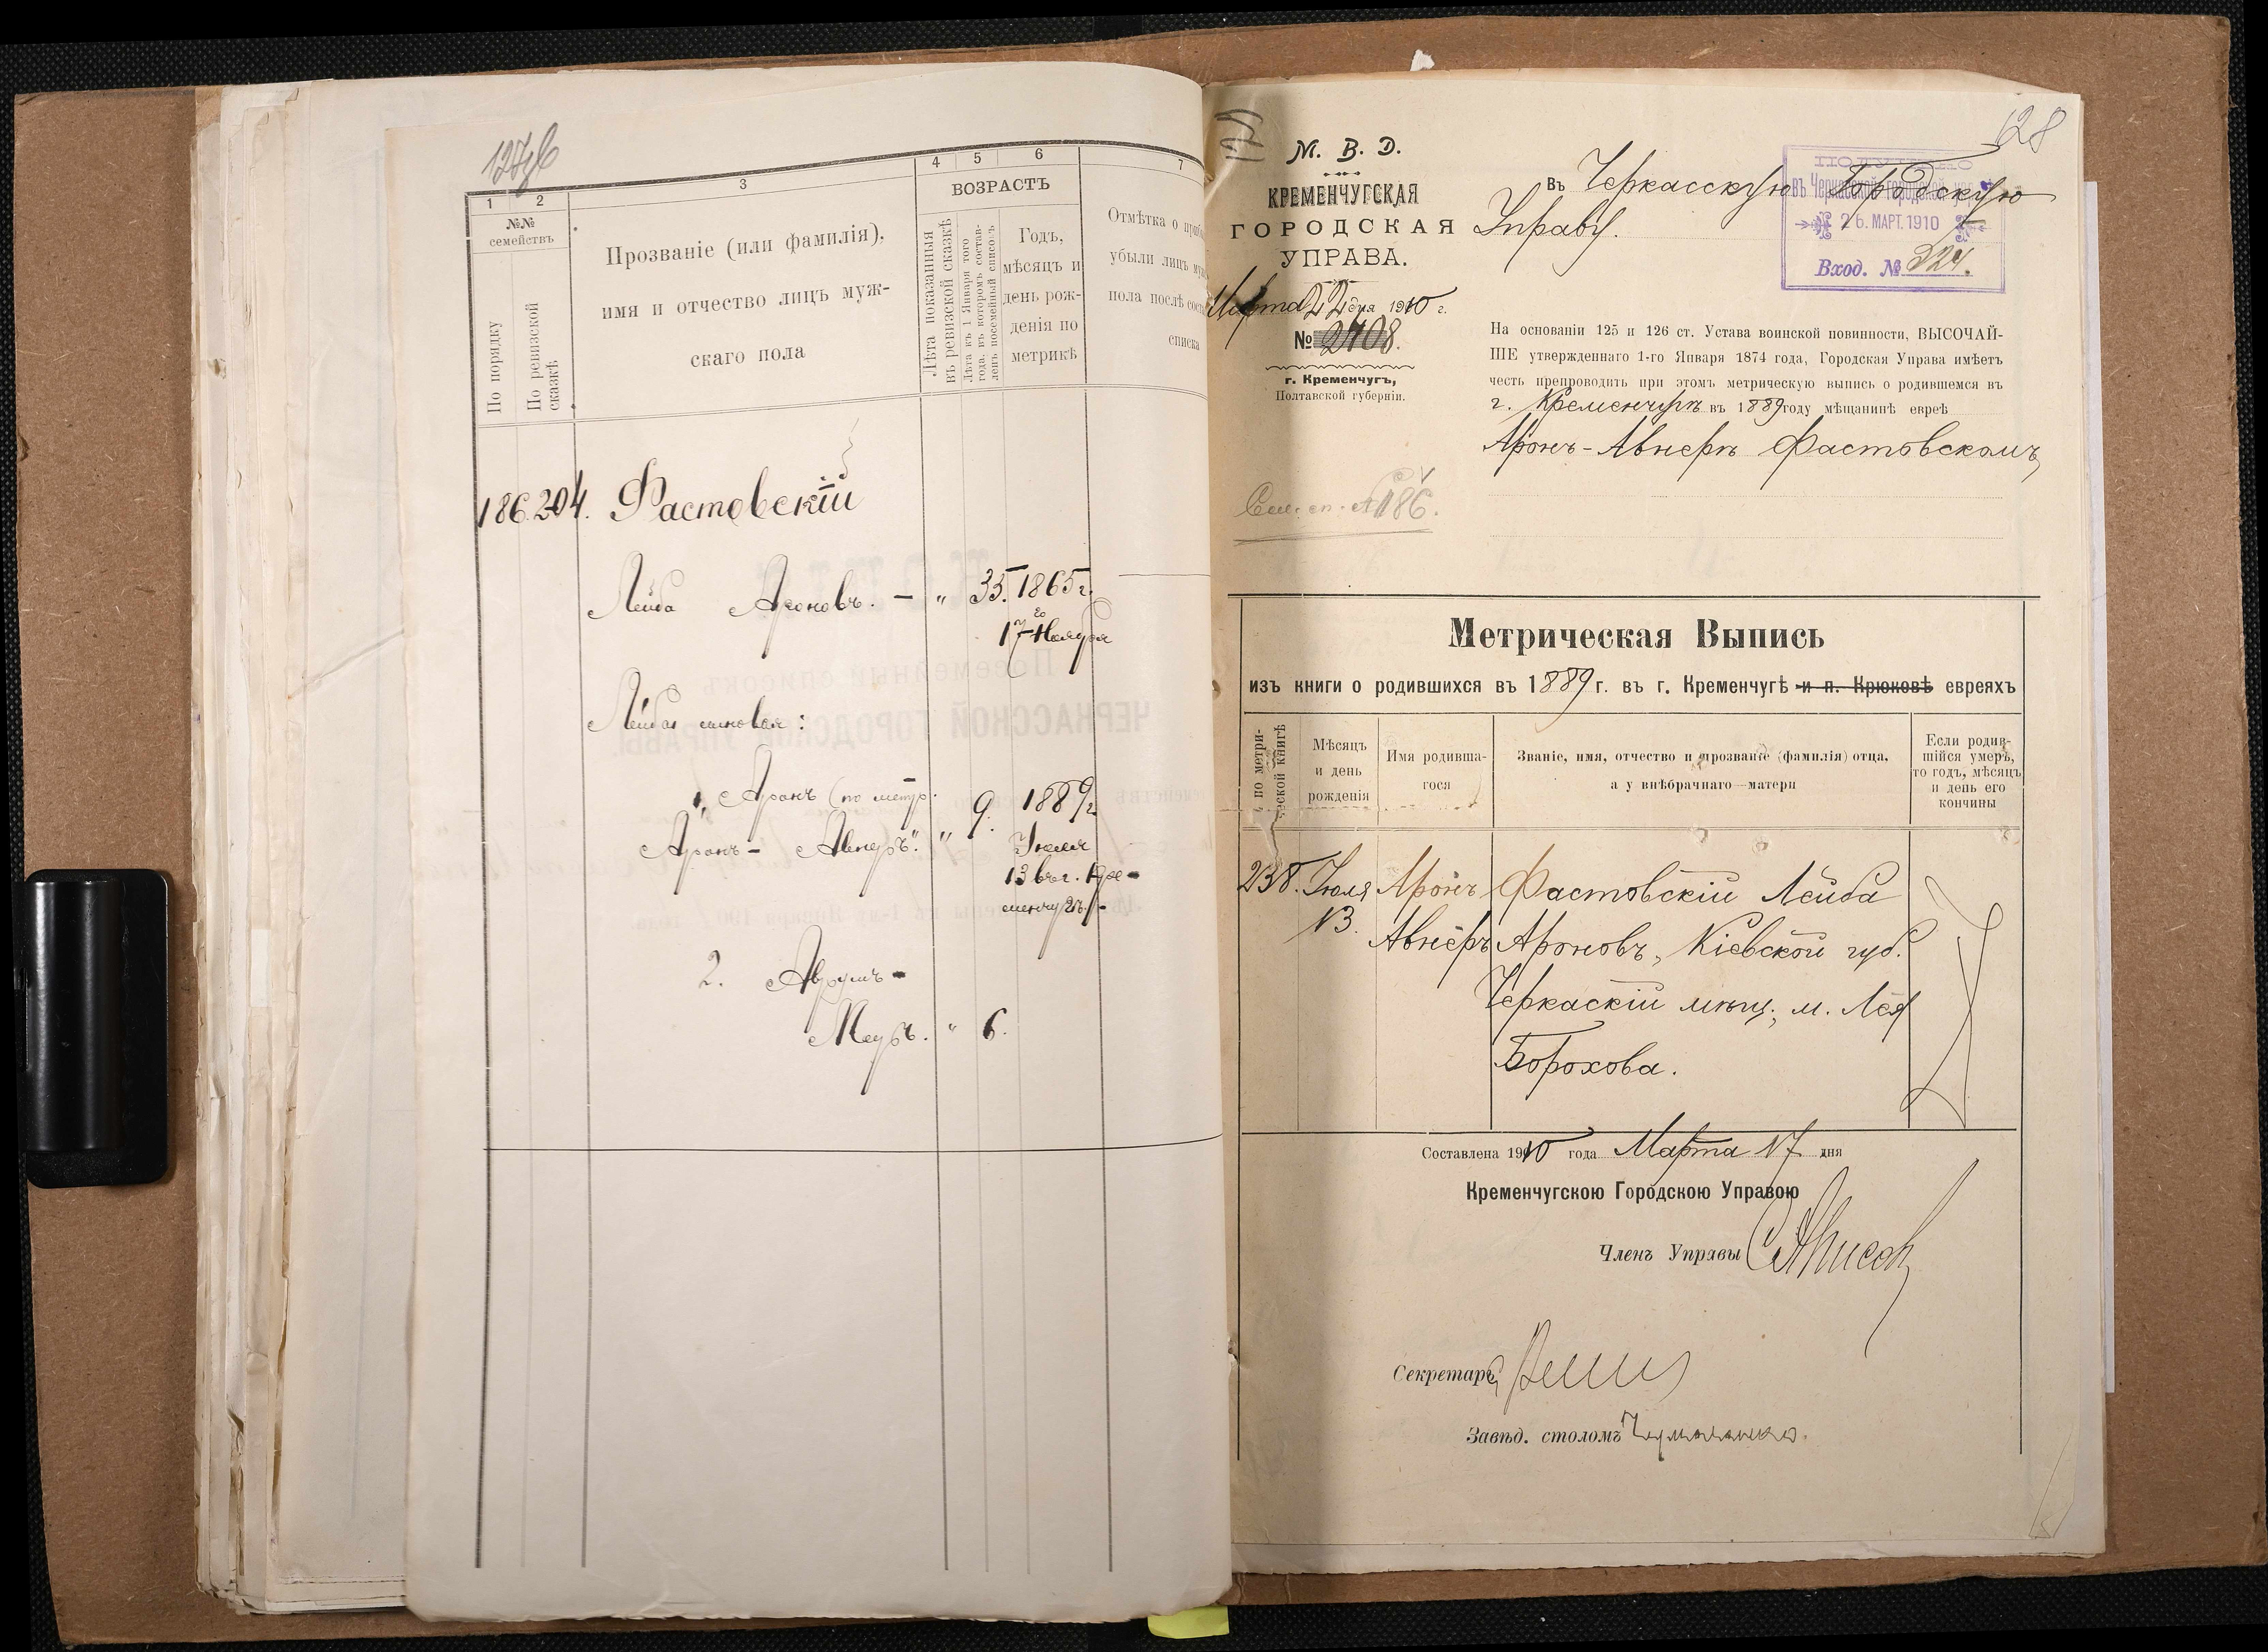 1 2 3 4 5 6 7
№№
семействъ
По порядку
По ревизской
сказкѣ
Прозваніе (или фамилія),
имя и отчество лицъ муж-
скаго пола
ВОЗРАСТЪ
Лѣта показанныя
въ ревизской сказкѣ
Лѣта къ 1 Января того
года, въ которомъ состав-
ленъ посемейный списокъ
Годъ,
мѣсяцъ и
день рож-
денія по
метрикѣ
Отмѣтка о
убыли лицъ
пола послѣ
списка
186. 204. Фастовскій
Лейба Ароновъ. - " 35. 1865 г.
17го Ноября
Лейбы сыновья:
1. Аронъ (по метр.
"Аронъ-Авнеръ". " 9. 1889 г.
Іюля
13 въ г. Кре-
менчугѣ
2. Аврумъ-
Меръ. " 6.
128
М. В. Д.
КРЕМЕНЧУГСКАЯ
ГОРОДСКАЯ
УПРАВА.
Марта 22 дня 1910 г.
№ 2408.
г. Кременчугъ,
Полтавской губерніи.
Сем. сп. № 186.
Въ Черкасскую Городскую
Управу.
ПОЛУЧЕНО
въ Черкасской городской управѣ
26. МАРТ. 1910
Вход. № 324.
На основаніи 125 и 126 ст. Устава воинской повинности, ВЫСОЧАЙ-
ШЕ утвержденнаго 1-го Января 1874 года, Городская Управа имѣетъ
честь препроводить при этомъ метрическую выпись о родившемся въ
г. Кременчугѣ въ 1889 году мѣщанинѣ евреѣ
Аронъ-Авнеръ Фастовскомъ
Метрическая Выпись
изъ книги о родившихся въ 1889 г. въ г. Кременчугѣ и п. Крюковѣ евреяхъ
№ по метри-
ческой книгѣ
Мѣсяцъ
и день
рожденія
Имя родивша-
гося
Званіе, имя, отчество и прозваніе (фамилія) отца,
а у внѣбрачнаго—матери
Если родив-
шійся умеръ,
то годъ, мѣсяцъ
и день его
кончины
238. Іюля Аронъ Фастовскій Лейба
13. Авнеръ Ароновъ, Кіевской губ.
Черкаскій мѣщ., м. Лея
Борохова.
Составлена 1910 года Марта 17 дня
Кременчугскою Городскою Управою
Членъ Управы
Секретарь
Завѣд. столомъ